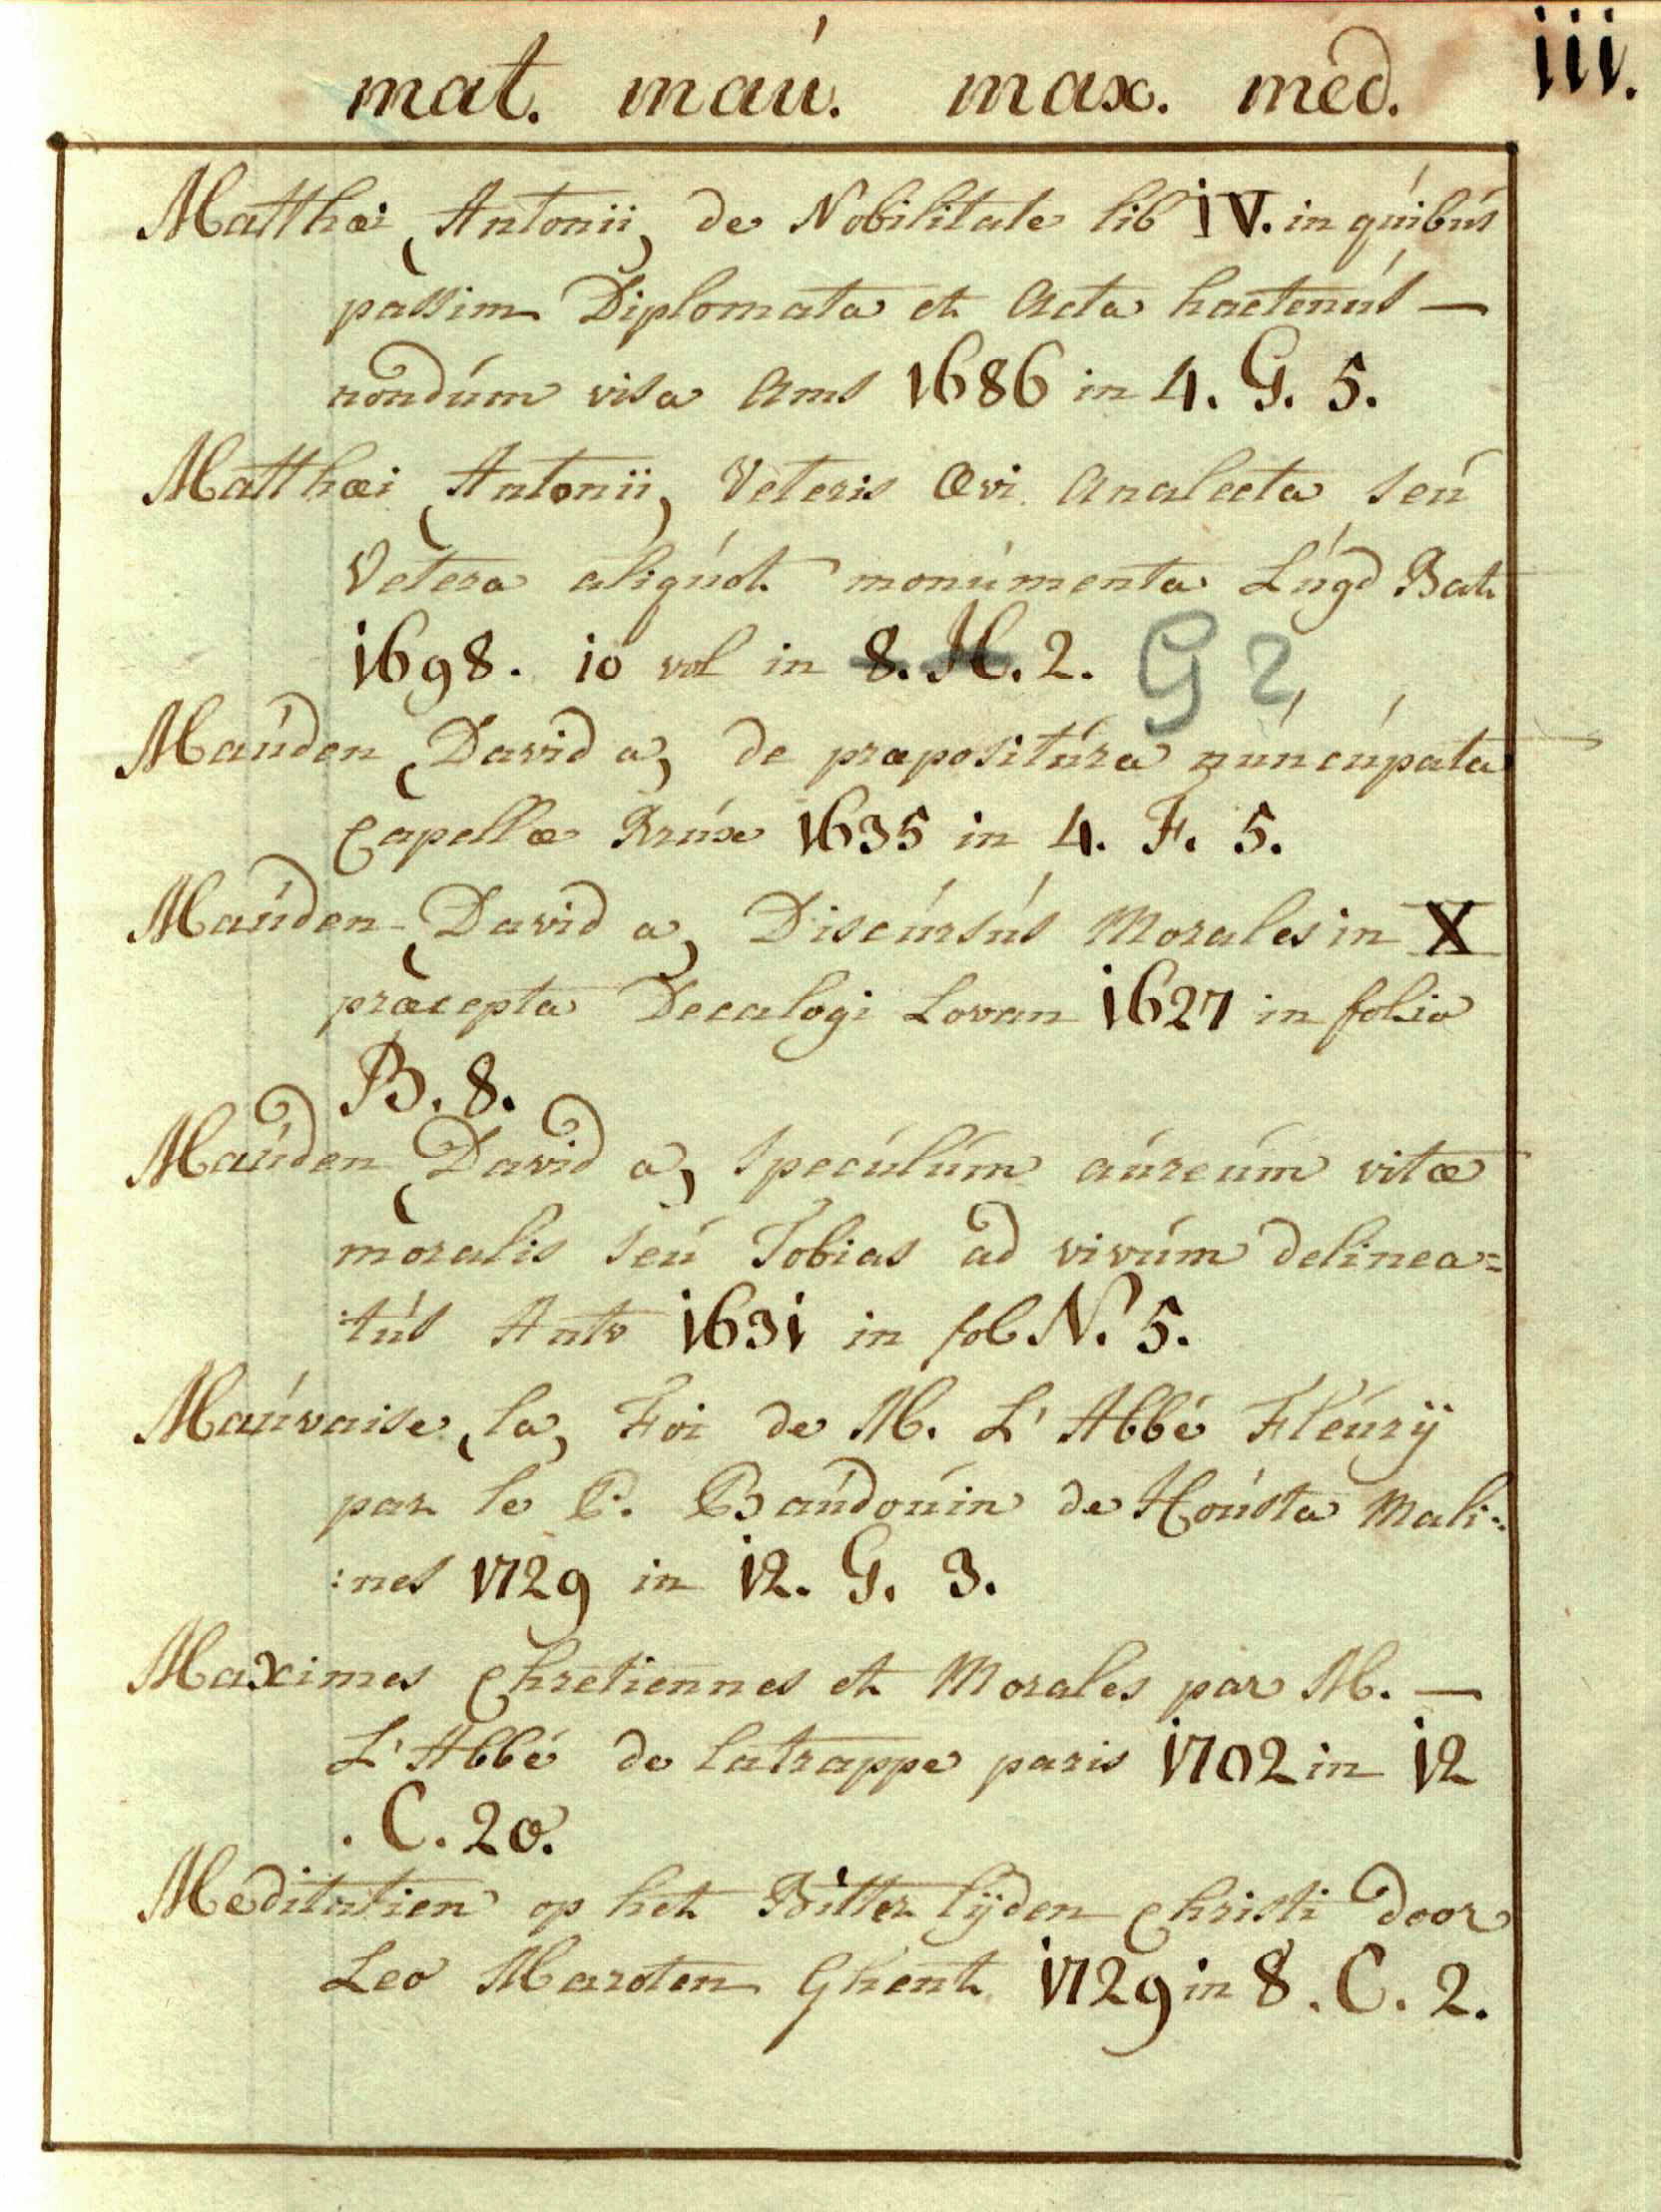 mat. maú. max. med. iii.
Matthæi (Antonii) de Nobilitate lib iV. in quibús
passim Diplomata et Acta hactenús —
nondúm visa Ams 1686 in 4. G. 5.
Matthæi (Antonii) Veteris Ævi Analecta seú
Vetera aliqúot monúmenta Lúgd Bat
1698. 10 vol in 8. H. 2. G 2
Maúden (David a) de præpositúra núncúpata
Capellæ Brúx 1635 in 4. F. 5.
Maúden (David a) Discúrsús Morales in X
præcepta Decalogi Lovan 1627 in folio
B. 8.
Maúden (David a) specúlúm aúreúm vitæ
moralis seú Tobias ad vivúm delinea=
:tús Antv 1631 in fol N. 5.
Maúvaise (la) Foi de M. L'Abbé Fleúrÿ
par le P. Baúdoúin de Hoústa Mali:
:nes 1729 in 12. G. 3.
Maximes Chretiennes et Morales par M. —
L'Abbé de latrappe paris 1702 in 12
. C. 20.
Meditatien op het Bitter lijden Christi door
Leo Maroten Ghent 1729 in 8. C. 2.